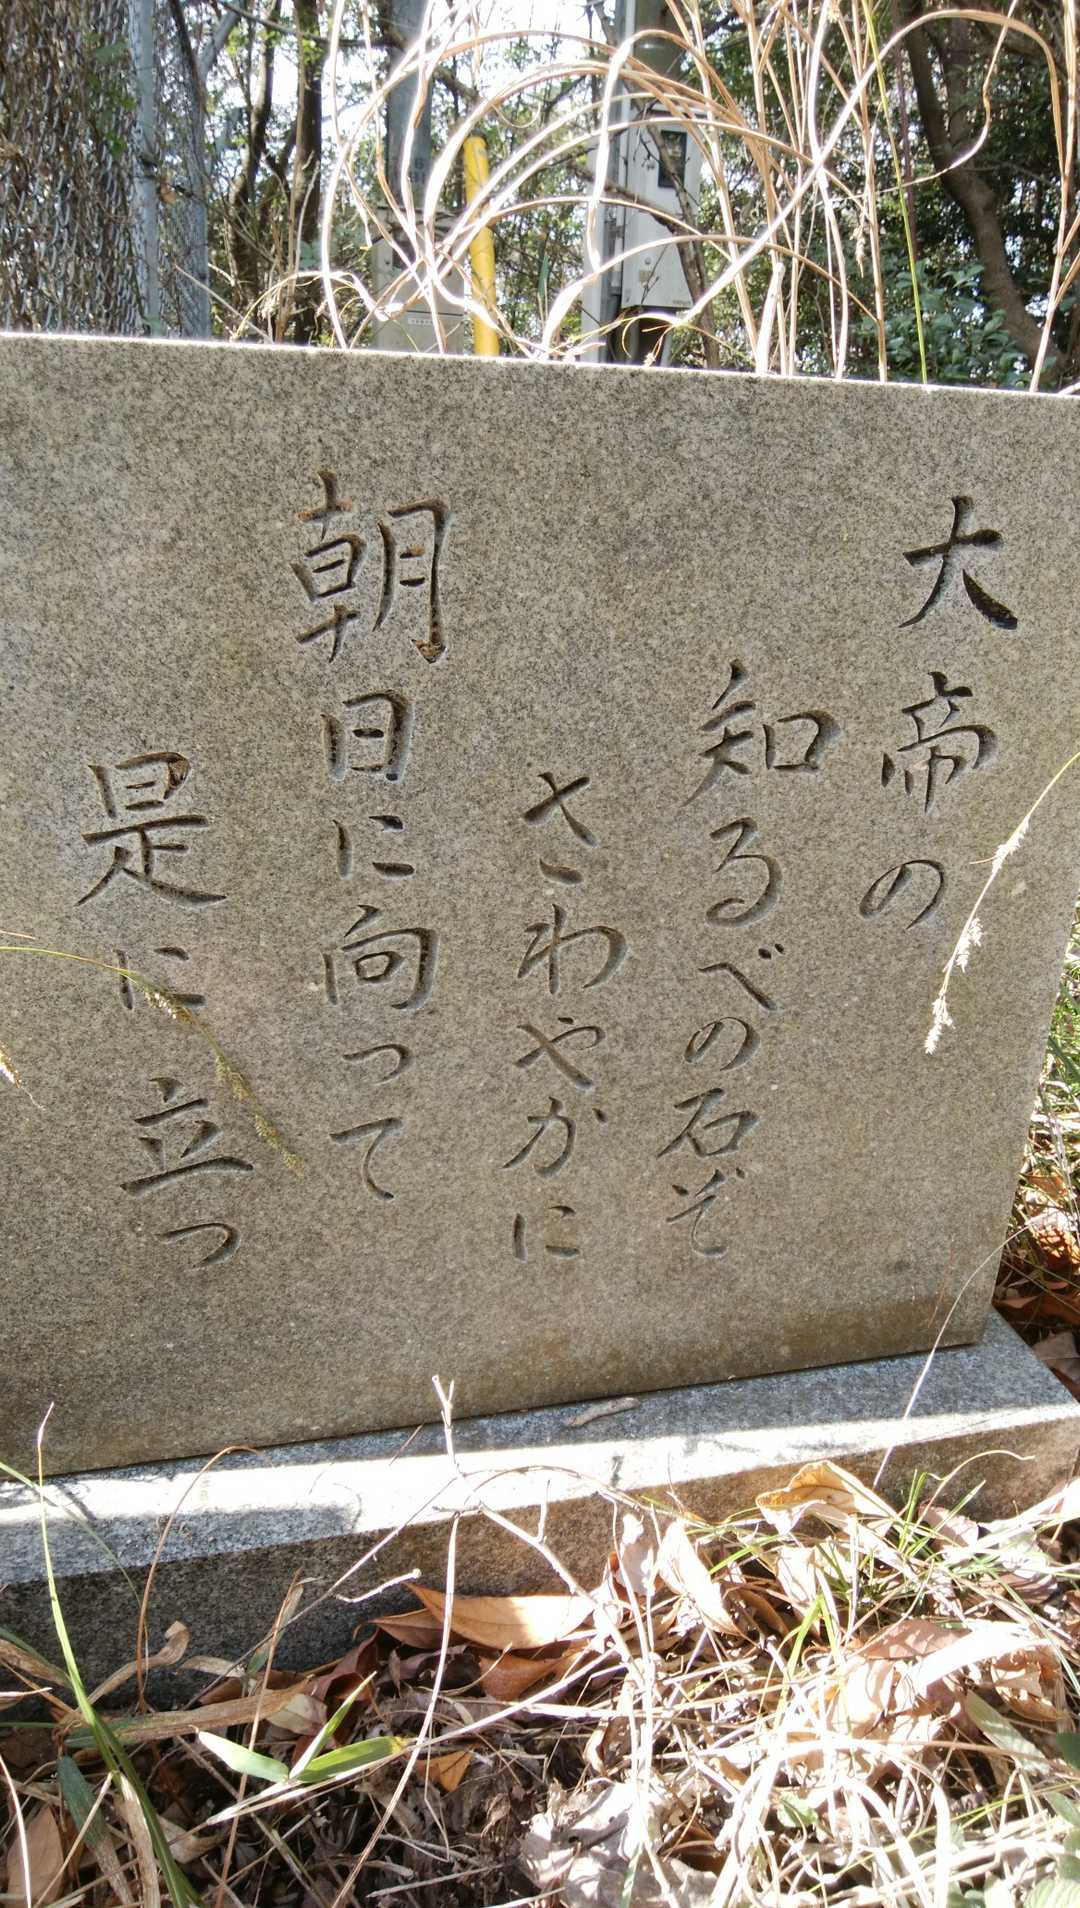 大帝の
知るべの石ぞ
さわやかに
朝日に向って
是に立つ